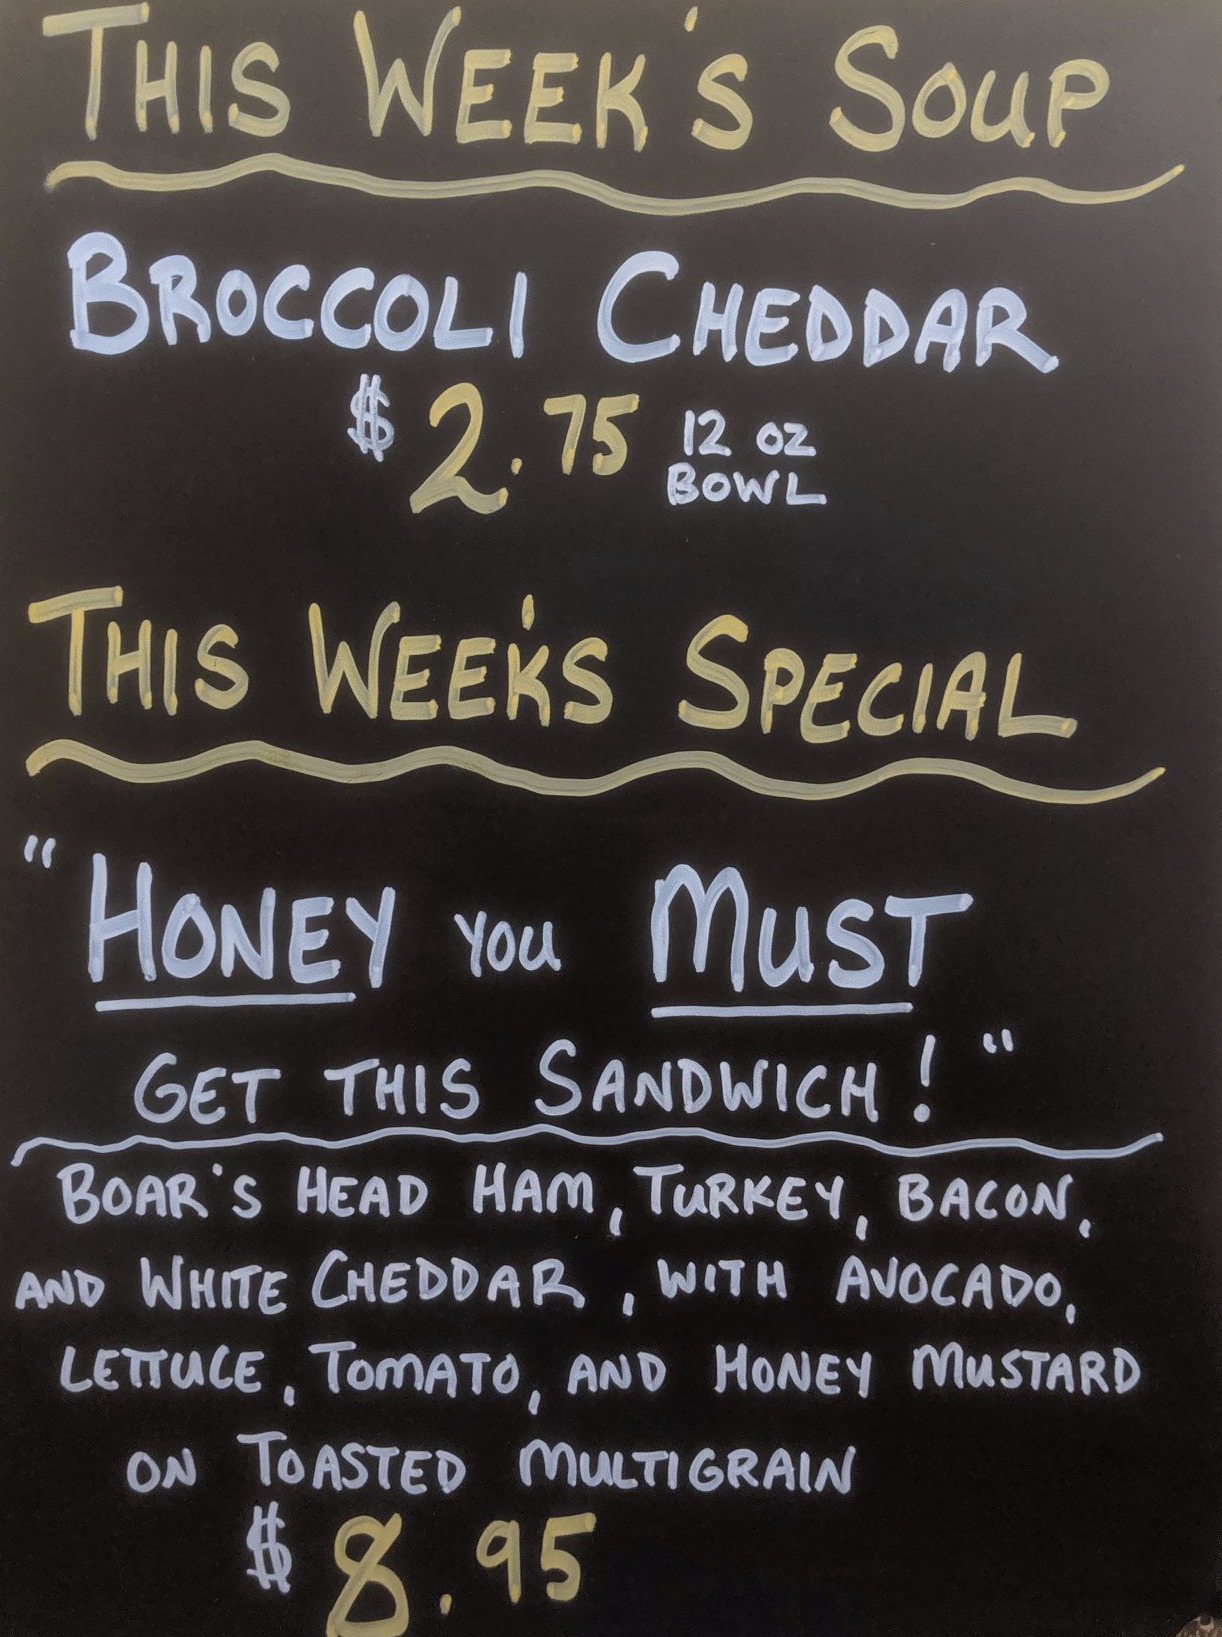 THIS WEEK'S SOUP
BROCCOLI CHEDDAR
$2.75 12 OZ
BOWL
THIS WEEK'S SPECIAL
"HONEY YOU MUST
GET THIS SANDWICH!"
BOAR'S HEAD HAM, TURKEY, BACON,
AND WHITE CHEDDAR, WITH AVOCADO,
LETTUCE, TOMATO, AND HONEY MUSTARD
ON TOASTED MULTIGRAIN
$8.95